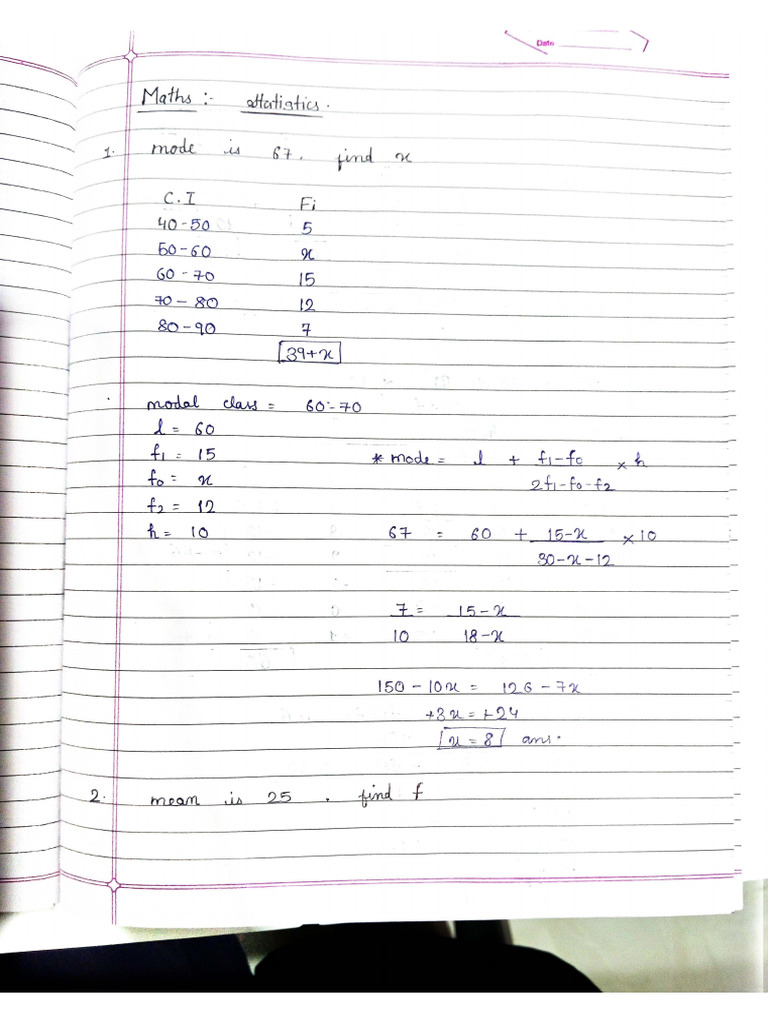 Date
Maths :- Statistics.
1. mode is 67. find x
C.I Fi
40-50 5
50-60 x
60-70 15
70-80 12
80-90 7
39+x
modal class = 60-70
l = 60
f1 = 15 * mode = l + f1-f0 × h
f0 = x 2f1-f0-f2
f2 = 12
h = 10 67 = 60 + 15-x × 10
30-x-12
7 = 15-x
10 18-x
150-10x = 126-7x
+3x = +24
x = 8 ans.
2. mean is 25. find f